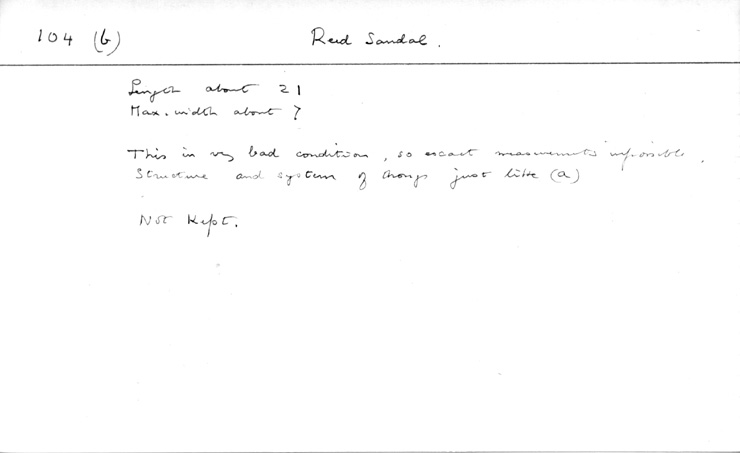 104 (b) Reed Sandal.
Length about 21
Max. width about 7
This in very bad condition, so exact measurements impossible.
Structure and system of thongs just like (a)
Not Kept.